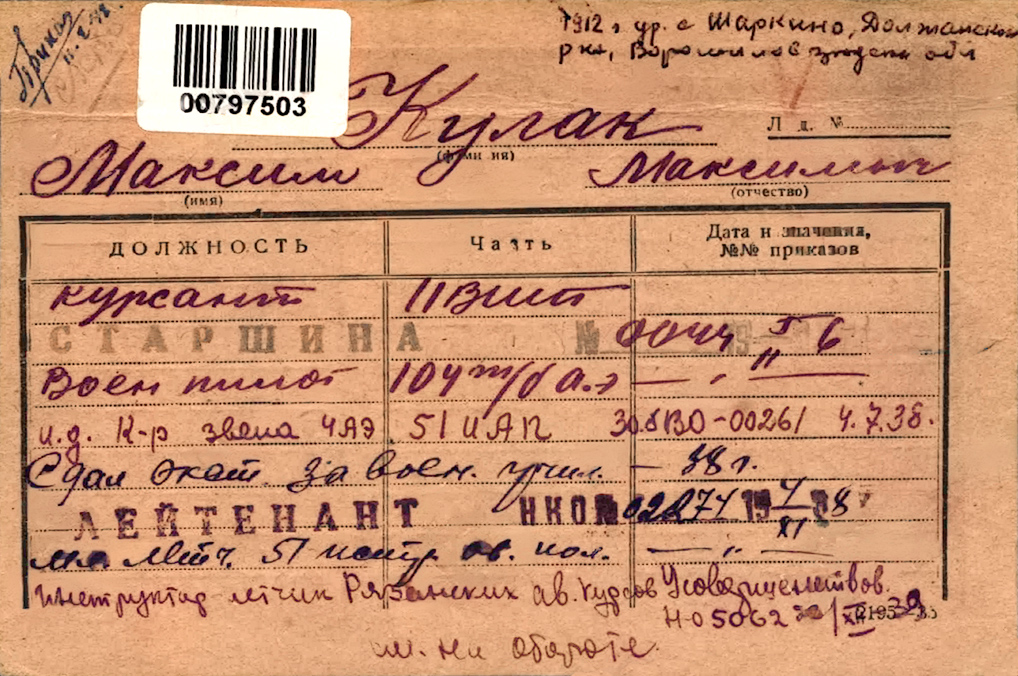 Приказ
00797503
1912 г ур. с Шаркино, Должанском
р-на, Ворошиловградск обл
Кулак
(фами ия)
Л д. №
Максим
Максимович
(имя)
(отчество)
ДОЛЖНОСТЬ
Часть
Дата н значения,
№№ приказов
курсант
11 ВШП
СТАРШИНА
№ 0044
19
6
Воен пилот
104 т/б а.э — „ —
и.д. К-р звена 4АЭ
51 ИАП
ЗабВО-00261 4.7.38.
Сдал экст. за воен. учил. — 38 г.
ЛЕЙТЕНАНТ
НКО № 02271
XI
мл. летч. 51 истр ав. пол. — „ —
Инструктор-летчик Рязанских ав. курсов Усовершенствов.
НО 5062
XII 39
см. на обороте.